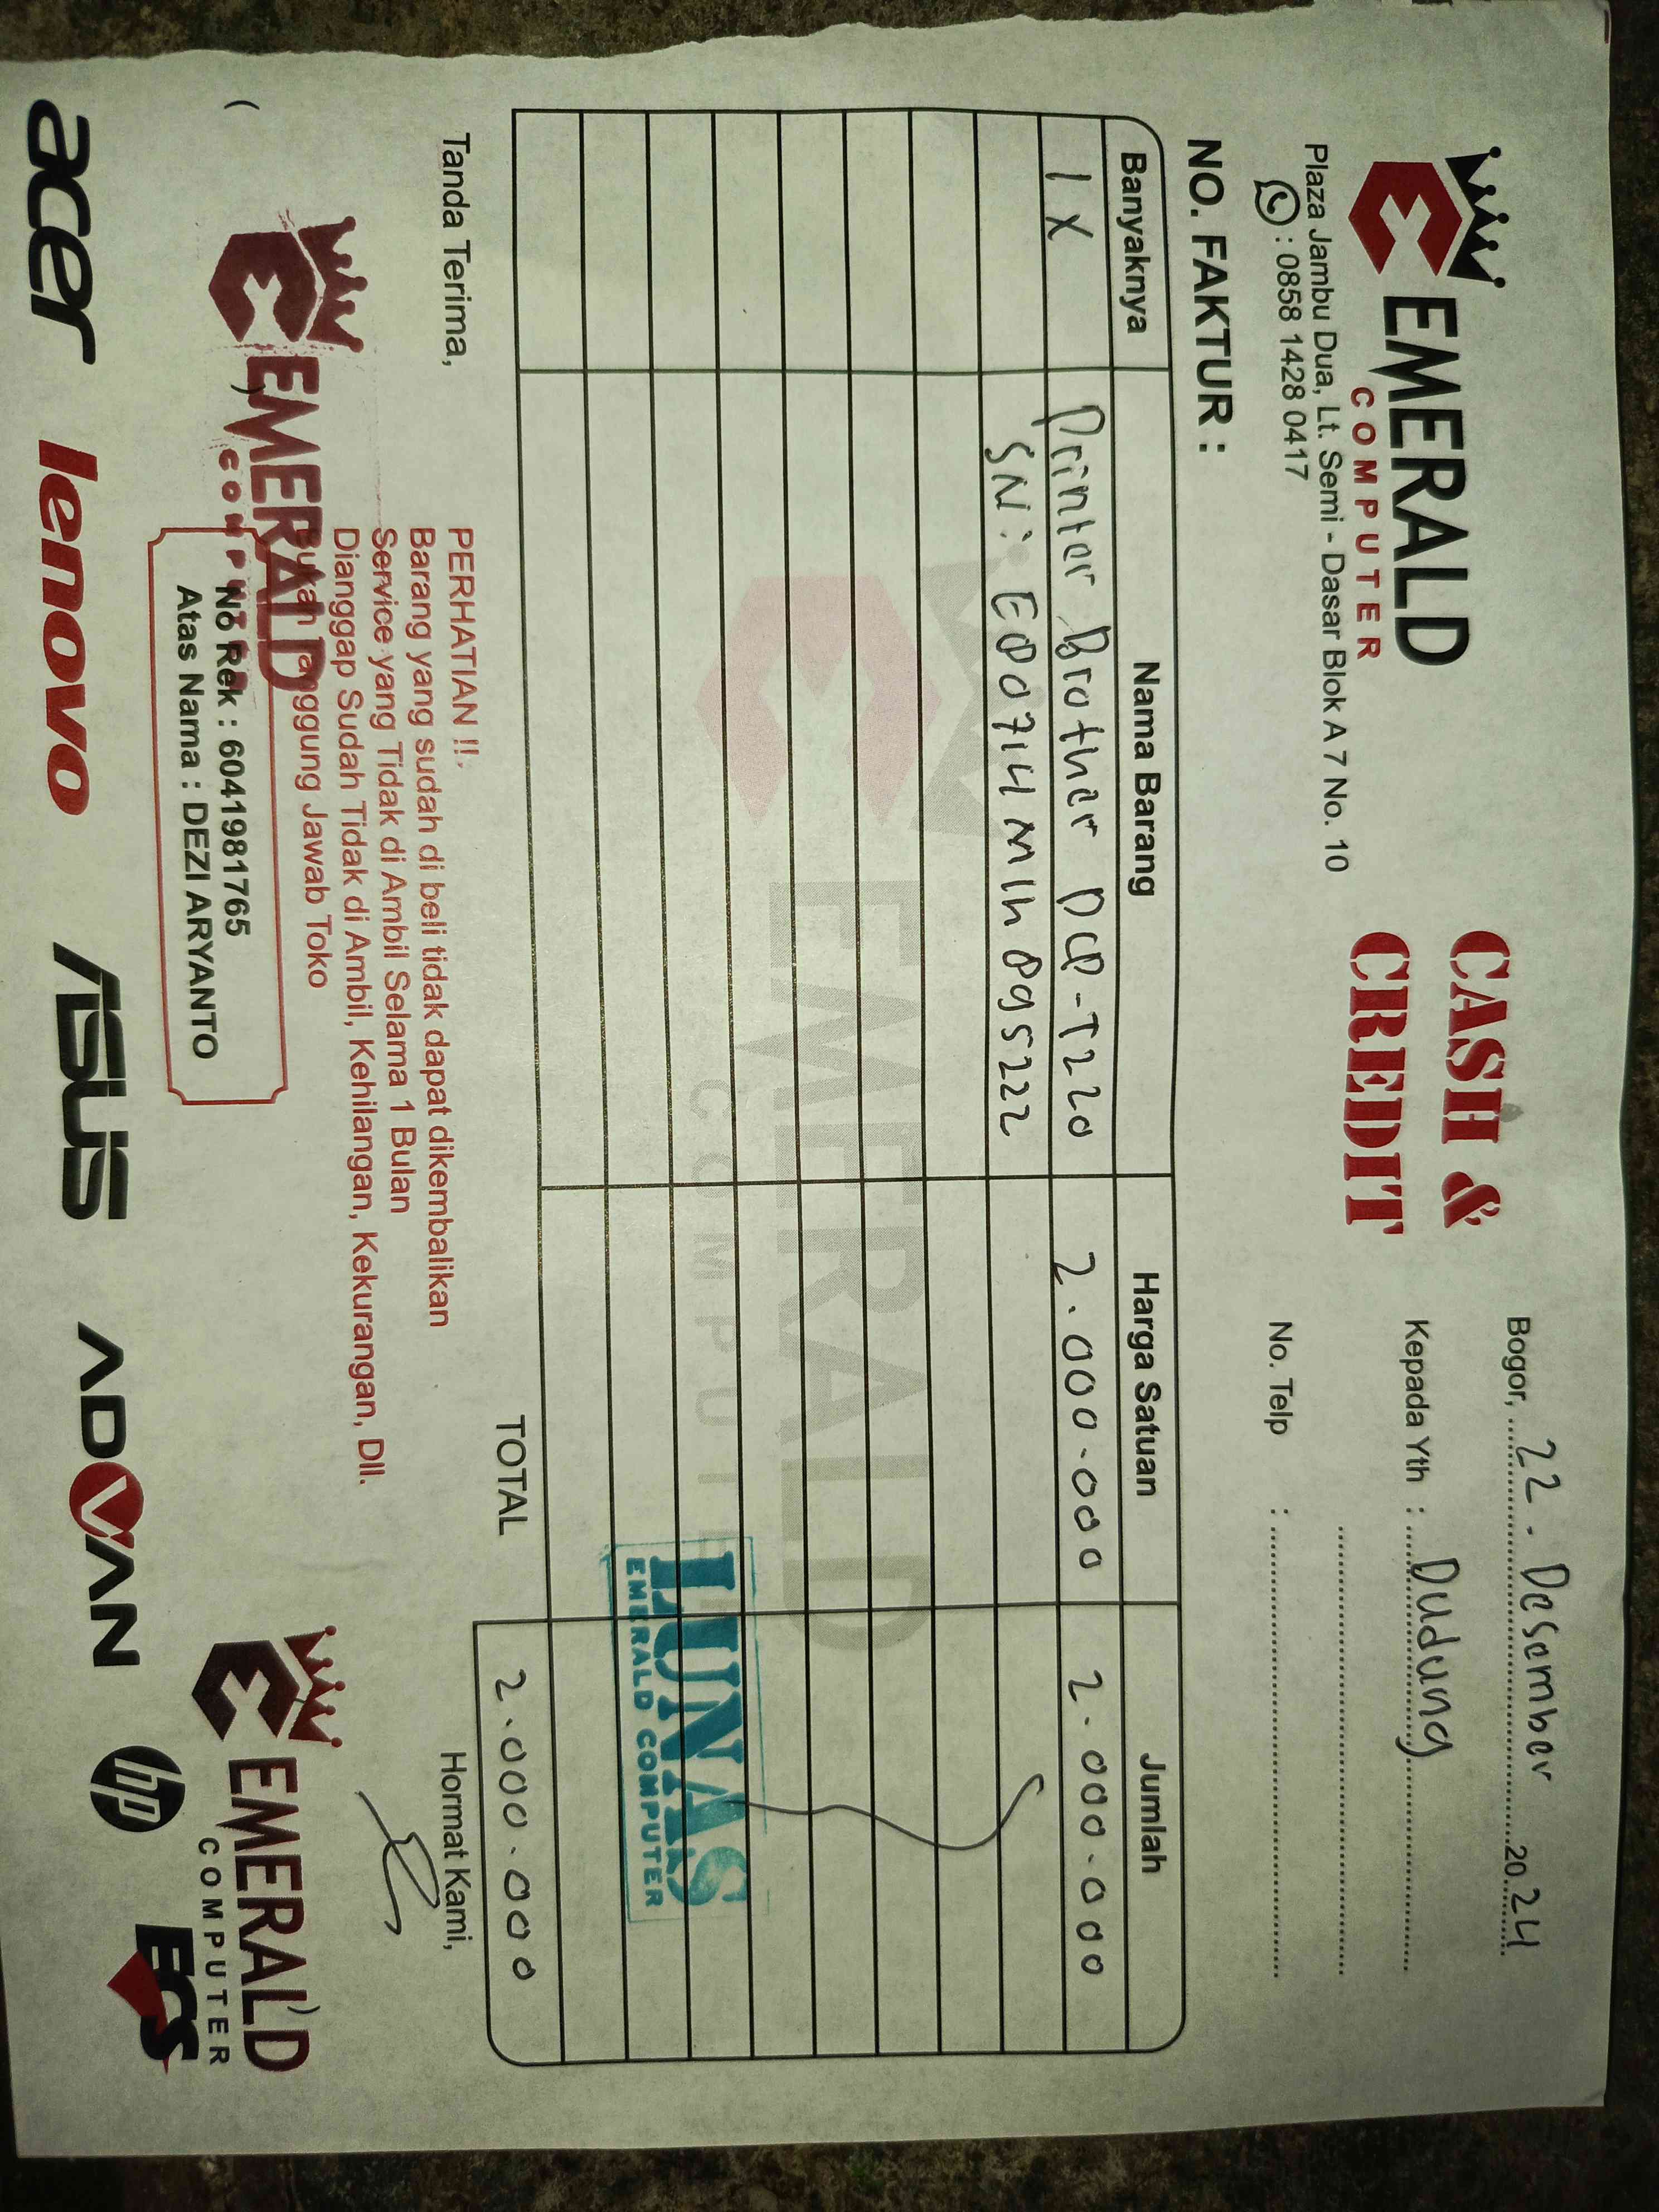 EMERALD
COMPUTER
Plaza Jambu Dua, Lt. Semi - Dasar Blok A 7 No. 10
: 0858 1428 0417
CASH &
CREDIT
Bogor, 22 - Desember 2024
Kepada Yth : Dudung
No. Telp :
NO. FAKTUR :
Banyaknya Nama Barang Harga Satuan Jumlah
1 X Printer Brother DCP-T220 2.000.000 2.000.000
SN:
EMERALD
COMPUTER
LUNAS
EMERALD COMPUTER
TOTAL 2.000.000
Tanda Terima,
Hormat Kami,
PERHATIAN !!.
Barang yang sudah di beli tidak dapat dikembalikan
Service yang Tidak di Ambil Selama 1 Bulan
Dianggap Sudah Tidak di Ambil, Kehilangan, Kekurangan, Dll.
Jawab Toko
No Rek : 6041981765
Atas Nama : DEZI ARYANTO
EMERALD
COMPUTER
EMERALD
COMPUTER
acer lenovo ASUS ADVAN hp ECS